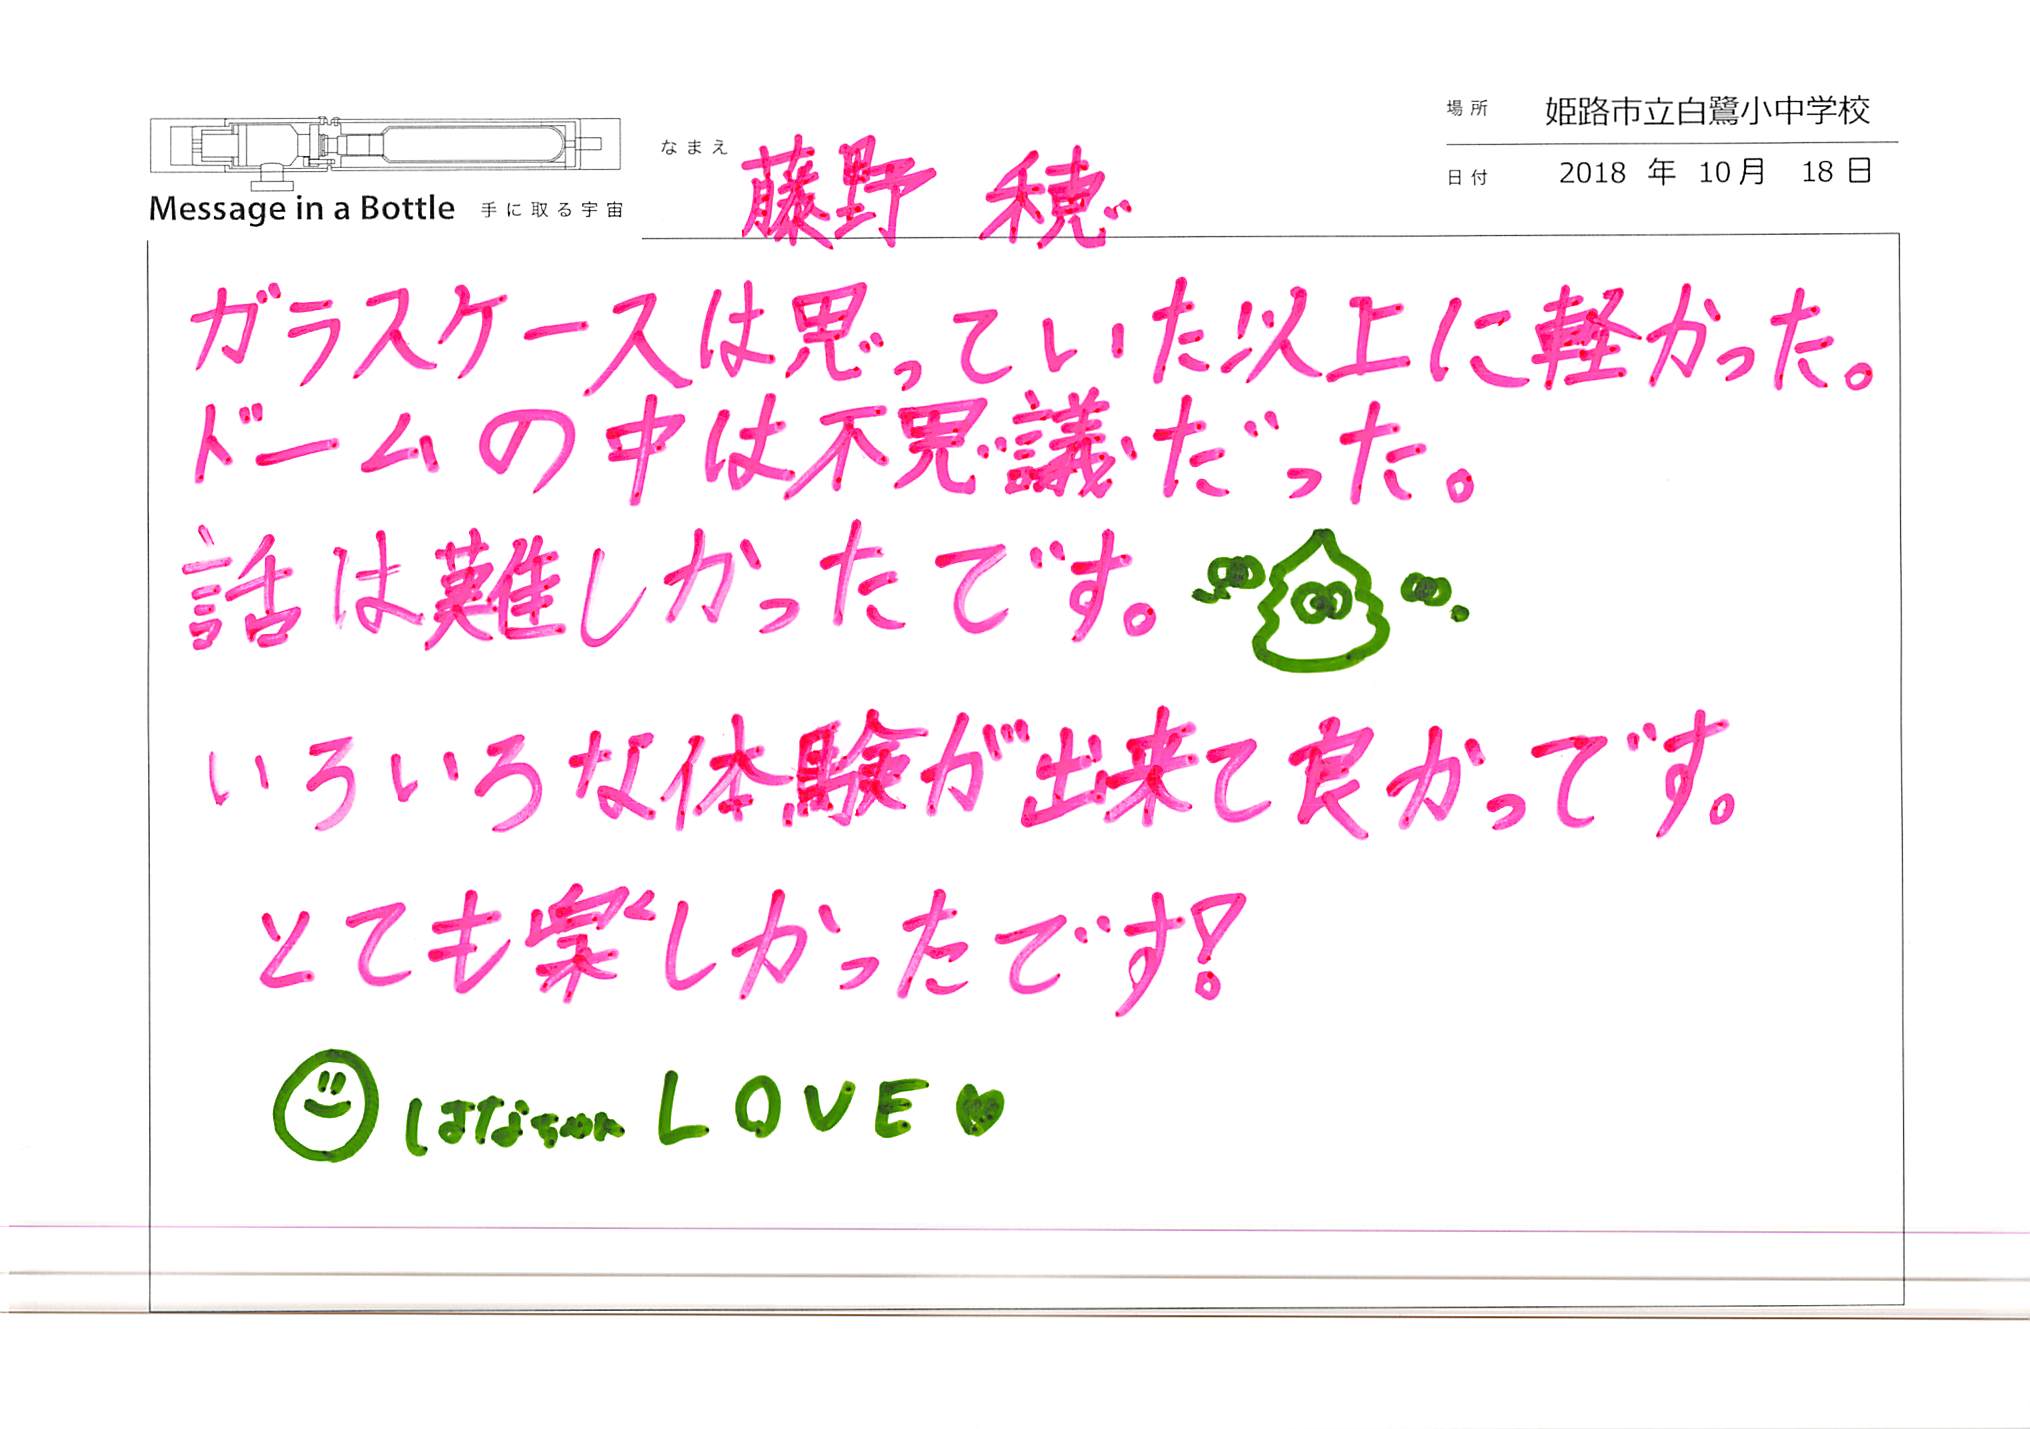 場所 姫路市立白鷺小中学校
日付 2018 年 10 月 18 日
なまえ 藤野 穂
Message in a Bottle 手に取る宇宙
ガラスケースは思っていた以上に軽かった。
ドームの中は不思議だった。
話は難しかったです。
いろいろな体験が出来て良かっです。
とても楽しかったです!
はなちゃん LOVE♥